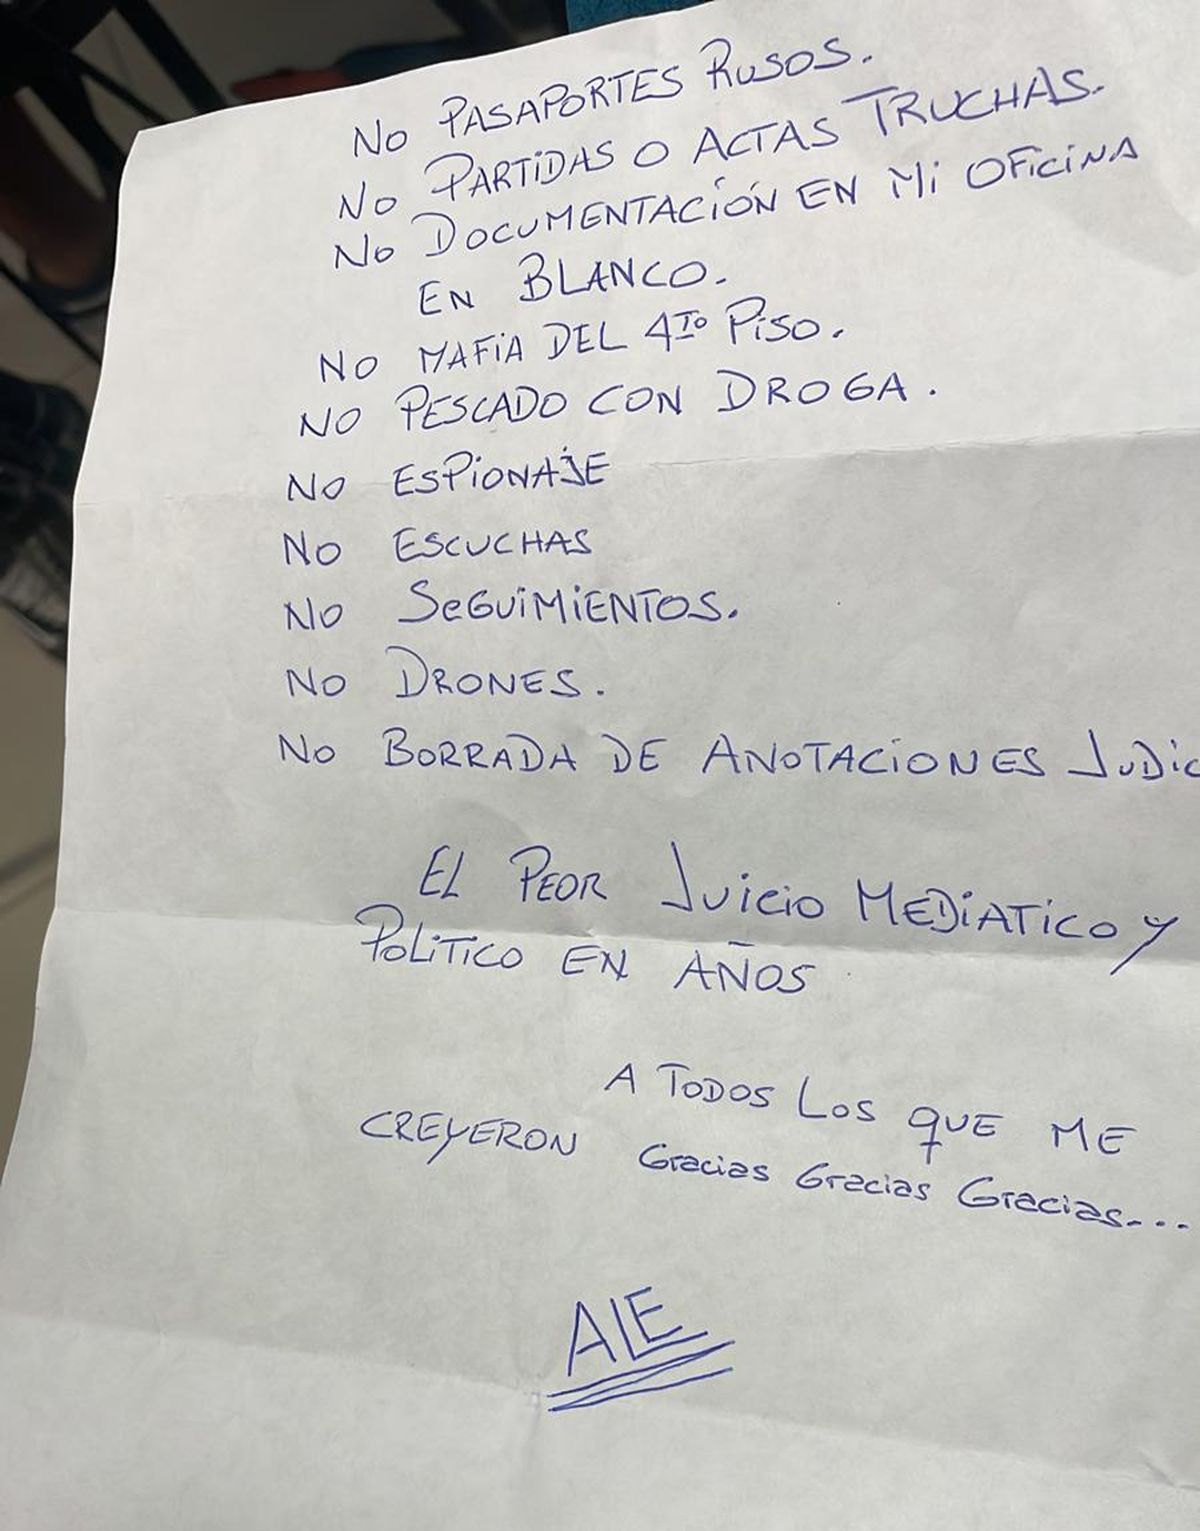 No PASAPORTES RUSOS.
No PARTIDAS O ACTAS TRUCHAS.
No DOCUMENTACIÓN EN Mi OFICINA
EN BLANCO.
NO MAFIA DEL 4TO PISO.
NO PESCADO CON DROGA.
NO ESPIONAJE
NO ESCUCHAS
NO SEGUIMIENTOS.
NO DRONES.
NO BORRADA DE ANOTACIONES JUDIC
EL PEOR JUICIO MEDIATICO Y
POLITICO EN AÑOS
A TODOS LOS QUE ME
CREYERON Gracias Gracias Gracias...
ALE